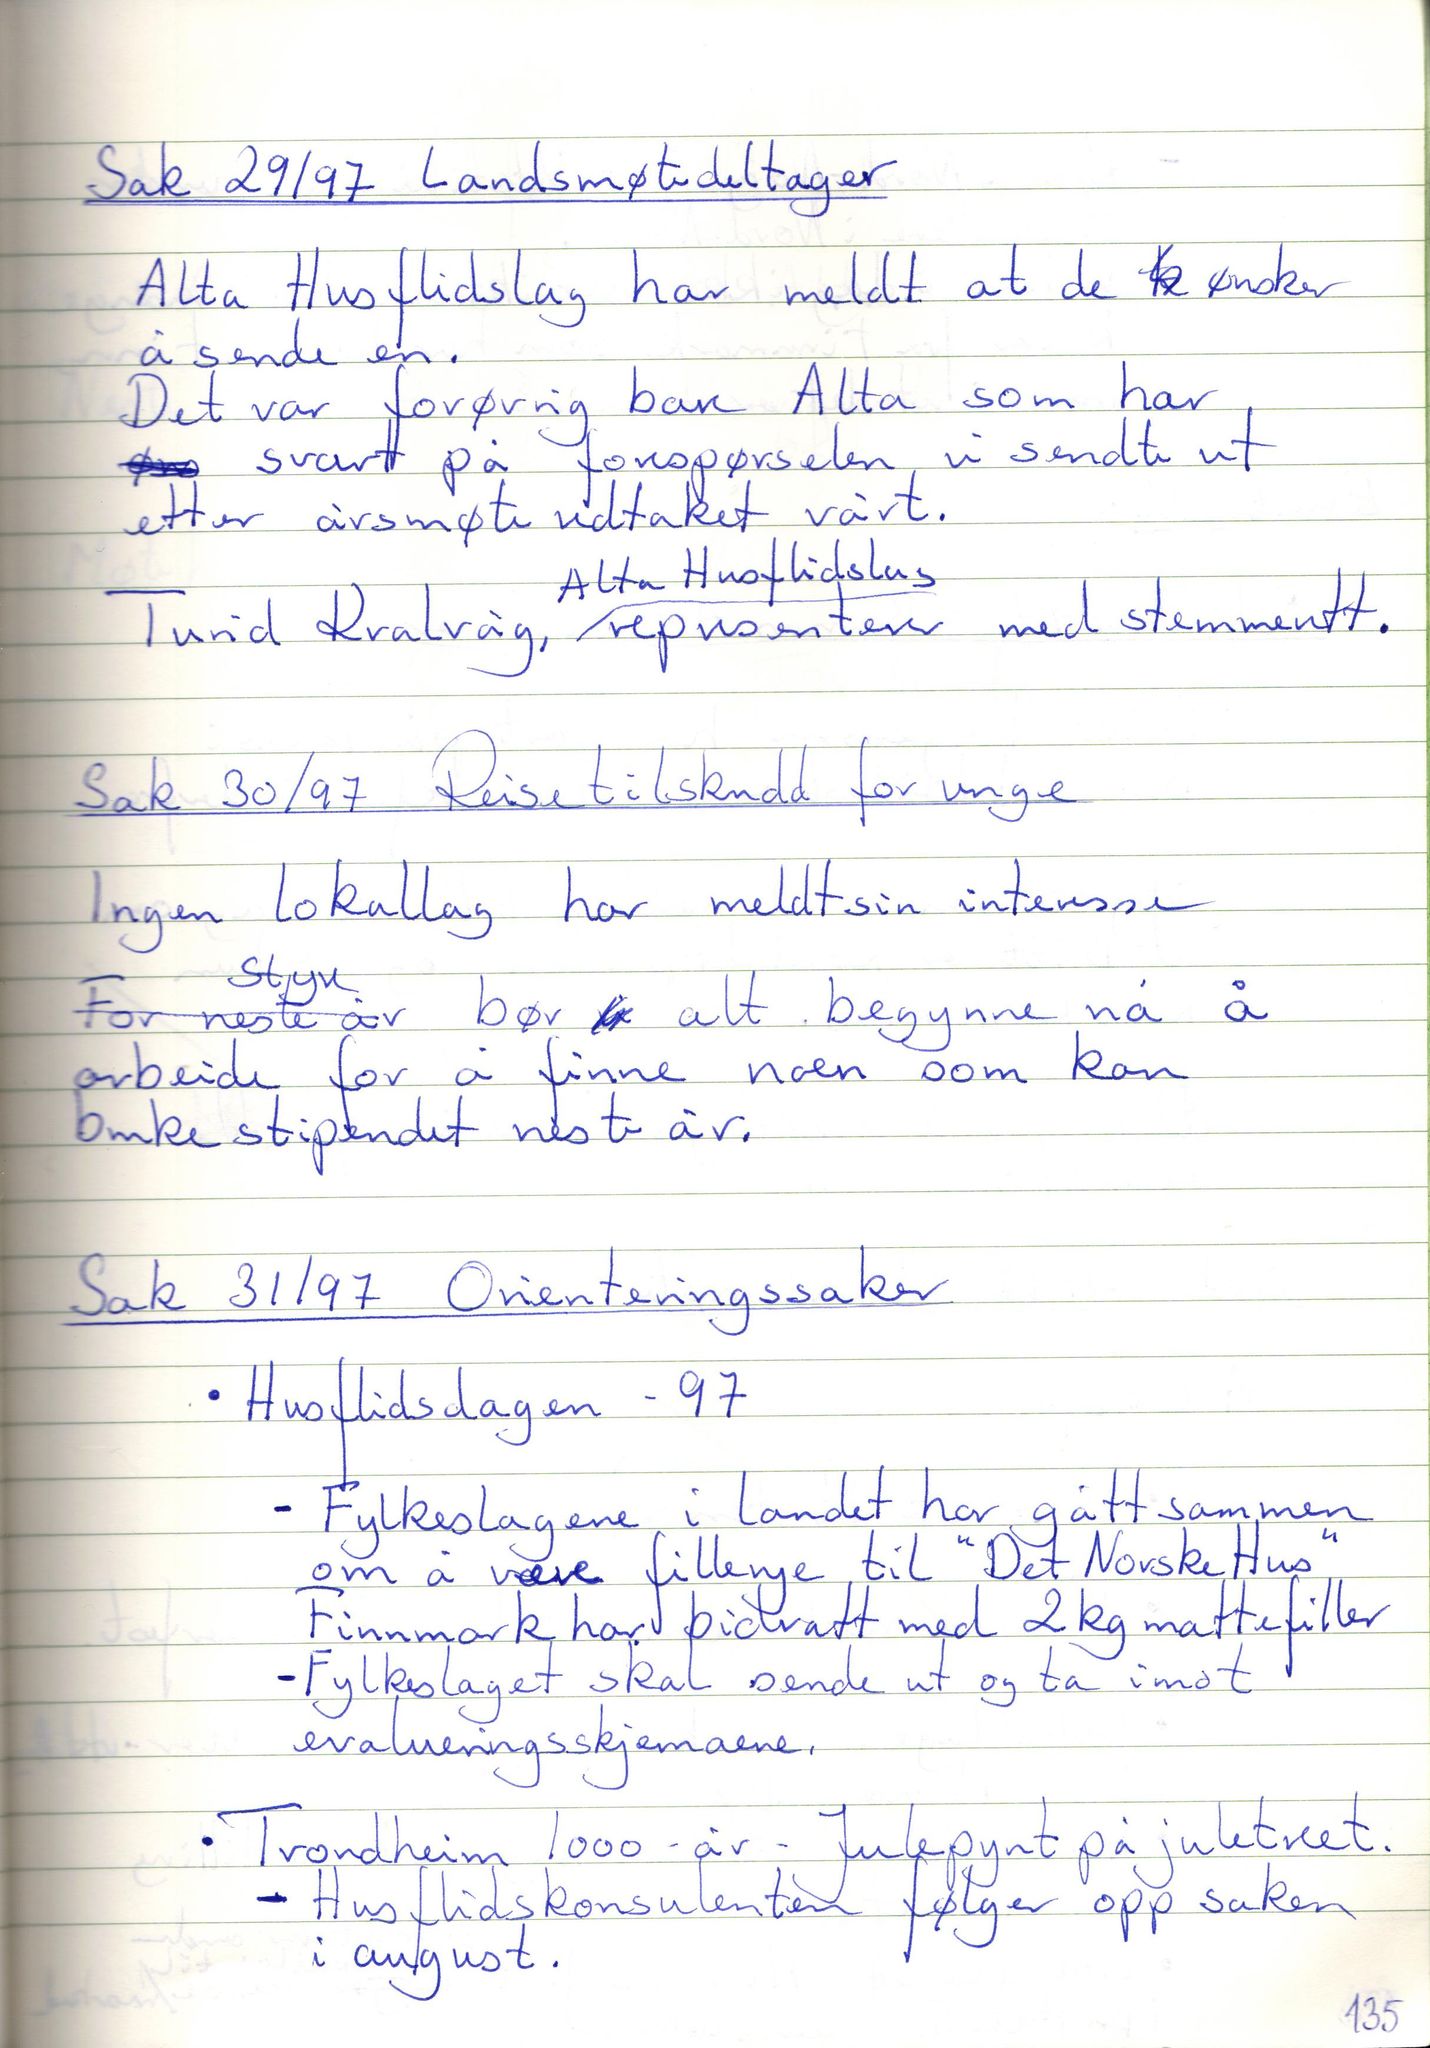 Sak 29/97 Landsmøtedeltager
Alta Husflidslag har meldt at de ønsker
å sende en.
Det var forøvrig bare Alta som har
svart på forespørselen vi sendte ut
etter årsmøte vedtaket vårt.
Alta Husflidslag
Turid Kvalvåg, representerer med stemmerett.
Sak 30/97 Reisetilskudd for unge
Ingen lokallag har meldt sin interesse
Styre
For neste år bør alt begynne nå å
arbeide for å finne noen som kan
bruke stipendet neste år.
Sak 31/97 Orienteringssaker
• Husflidsdagen - 97
- Fylkeslagene i landet har gått sammen
om å veve fillerye til "Det Norske Hus"
Finnmark har bidratt med 2 kg mattefiller
- Fylkeslaget skal sende ut og ta imot
evalueringsskjemaene.
• Trondheim 1000 - år - Julepynt på juletreet.
- Husflidskonsulenten følger opp saken
i august.
135